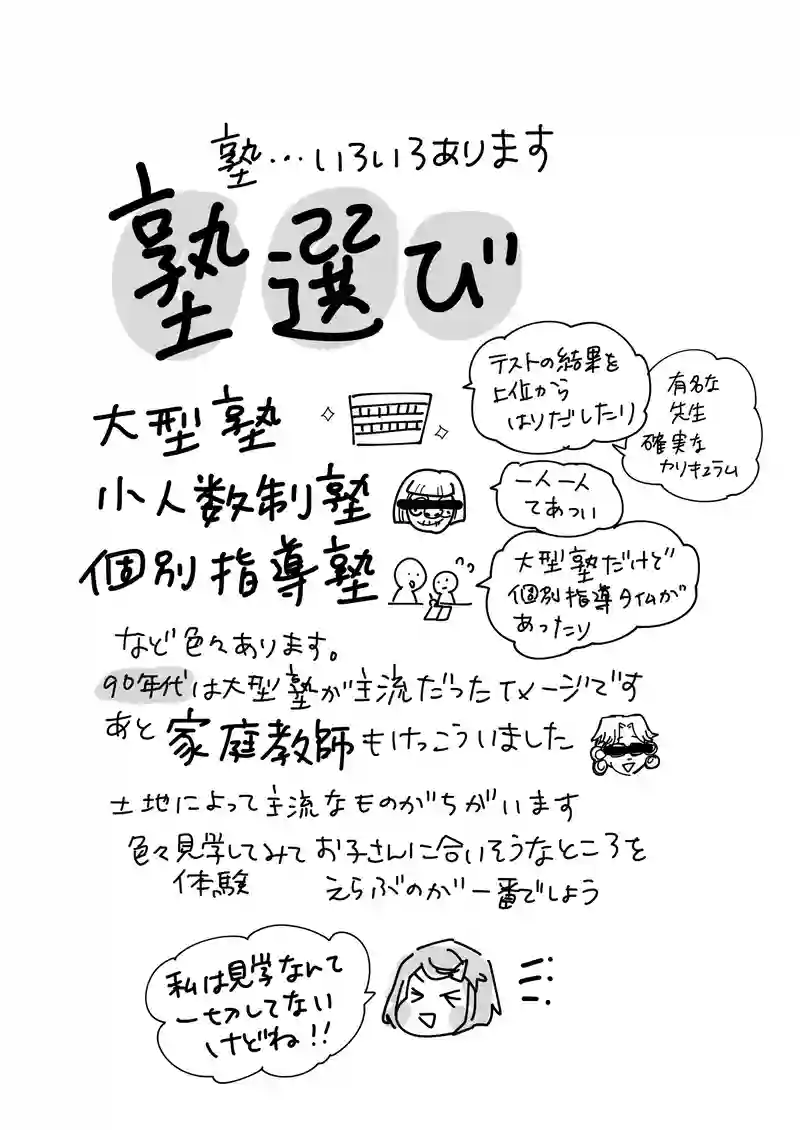 塾…いろいろあります
塾選び
大型塾
テストの結果を
上位から
はりだしたり
有名な
先生
確実な
カリキュラム
小人数制塾
一人一人
てあつい
個別指導塾
大型塾だけど
個別指導タイムが
あったり
など色々あります。
90年代は大型塾が主流だったイメージです
あと家庭教師もけっこういました
土地によって主流なものがちがいます
色々見学してみてお子さんに合いそうなところを
体験 えらぶのが一番でしよう
私は見学なんて
一切してない
けどね!!